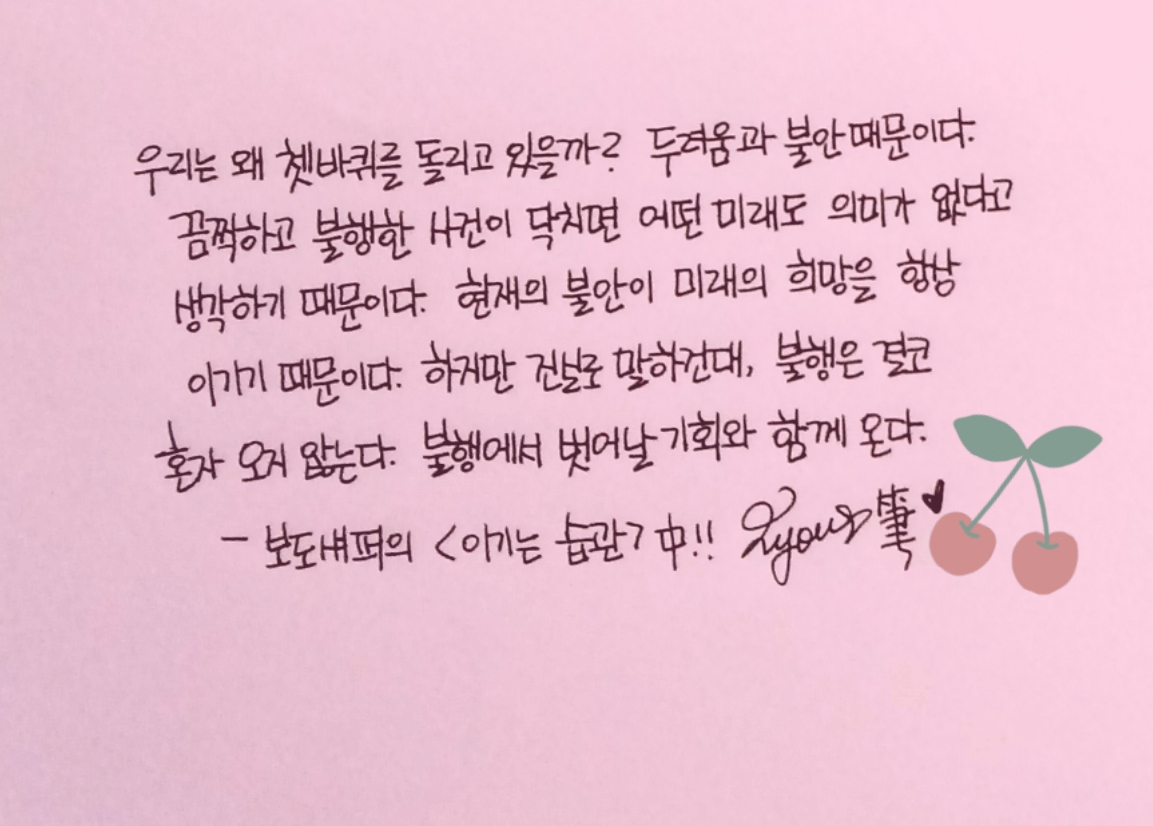 우리는 왜 쳇바퀴를 돌리고 있을까? 두려움과 불안 때문이다.
끔찍하고 불행한 사건이 닥치면 어떤 미래도 의미가 없다고
생각하기 때문이다. 현재의 불안이 미래의 희망을 항상
이기기 때문이다. 하지만 진실로 말하건대, 불행은 결코
혼자 오지 않는다. 불행에서 벗어날 기회와 함께 온다.
- 보도섀퍼의 <이기는 습관> 中!! 筆